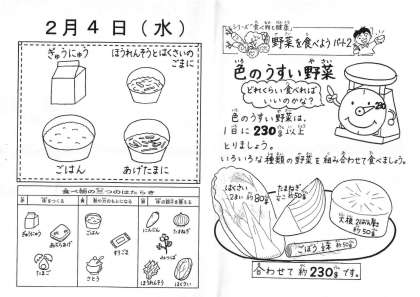 2月4日(水)
ぎゅうにゅう
ほうれんそうとはくさいの
ごまに
ごはん
あげたまに
食べ物の三つのはたらき
ぎゅうにゅう
あぶらあげ
たまご
ごはん
さとう
にんじん
たまねぎ
ほうれんそう
はくさい
シリーズ「食べ物と健康」
野菜を食べよう パート2
色のうすい野菜
どれくらい食べれば
いいのかな?
230g
色のうすい野菜は、
1日に230g以上
とりましょう。
いろいろな種類の野菜を組み合わせて食べましょう。
はくさい
約80g
たまねぎ
約50g
大根
約50g
ごぼう
約50g
合わせて約230gです。